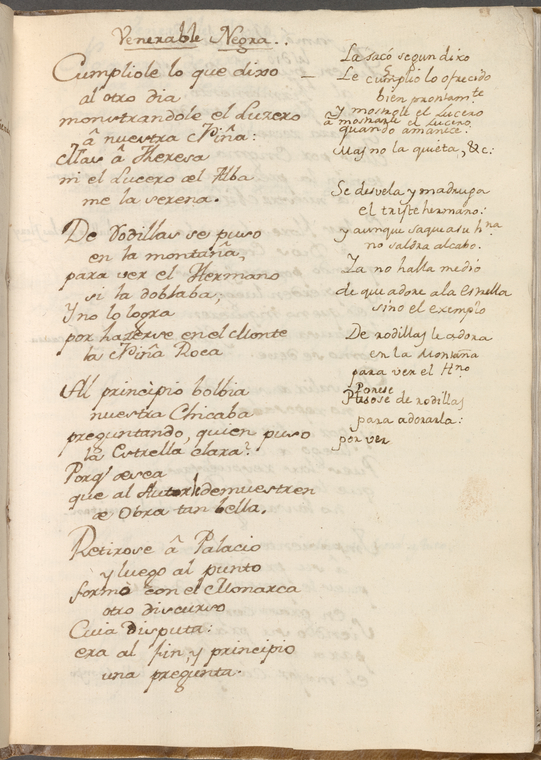 Venerable Negra..
Cumpliole lo que dixo
al otro dia
monstrandole el Luzero
â nuestra Niña:
Mas â Theresa
ni el Lucero æl Alba
me la serena.
De Rodillas se puso
en la montaña,
para ver el Hermano
si la doblaba;
Y no lo logra
por hazerse en el Monte
la Niña Roca
Al principio bolbia
nuestra Chicaba
preguntando, quien puso
la Estrella clara?
Porq̃ desea
que al Autor demuestren
æ Obra tan bella.
Retirose â Palacio
y luego al punto
formó con el Monarca
otro discurso
Cuia Disputa:
era al fin, y principio
una pregunta.
La sacó segun dixo
Le cumplio lo ofrecido
bien prontamte
y mostrole el Lucero
â mostrarle el Lucero
quando amanece:
Mas no la quieta, &c:
Se desvela y madruga
el triste hermano:
y aunque saque a su hna
no saldra al cabo.
Ya no halla medio
de que adore a la Estrella
sino el exemplo
De rodillas le adora
en la Montaña
para ver el Hno
Ponese
Pusose de rodillas
para adorarla:
por ver